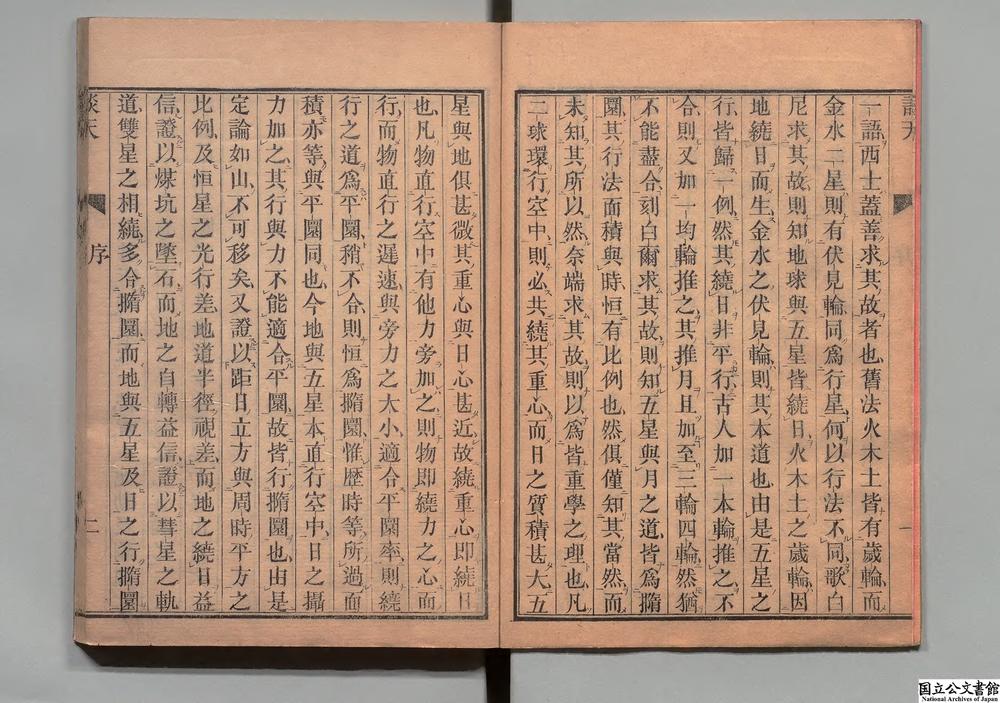 談天
一語西士蓋善求其故者也舊法火木土皆有歲輪而
金水二星則有伏見輪同爲行星何以行法不同歌白
尼求其故則知地球與五星皆繞日火木土之歲輪因
地繞日而生金水之伏見輪則其本道也由是五星之
行皆歸一例然其繞日非平行古人加一本輪推之不
合則又加一均輪推之其推月且加至三輪四輪然猶
不能盡合刻白爾求其故則知五星與月之道皆爲撱
圜其行法面積與時恒有比例也然俱僅知其當然而
未知其所以然奈端求其故則以爲皆重學之理也凡
二球環行空中則必共繞其重心而日之質積甚大五
一
星與地俱甚微其重心與日心甚近故繞重心即繞日
也凡物直行空中有他力旁加之則物即繞力之心而
行而物直行之遲速與旁力之大小適合平圜率則繞
行之道爲平圜稍不合則恒爲撱圜惟歷時等所過面
積亦等與平圜同也今地與五星本直行空中日之攝
力加之其行與力不能適合平圜故皆行撱圜也由是
定論如山不可移矣又證以距日立方與周時平方之
比例及恒星之光行差地道半徑視差而地之繞日益
信證以煤坑之墜石而地之自轉益信證以彗星之軌
道雙星之相繞多合撱圜而地與五星及日之行撱圜
談天
序
二
国立公文書館
National Archives of Japan